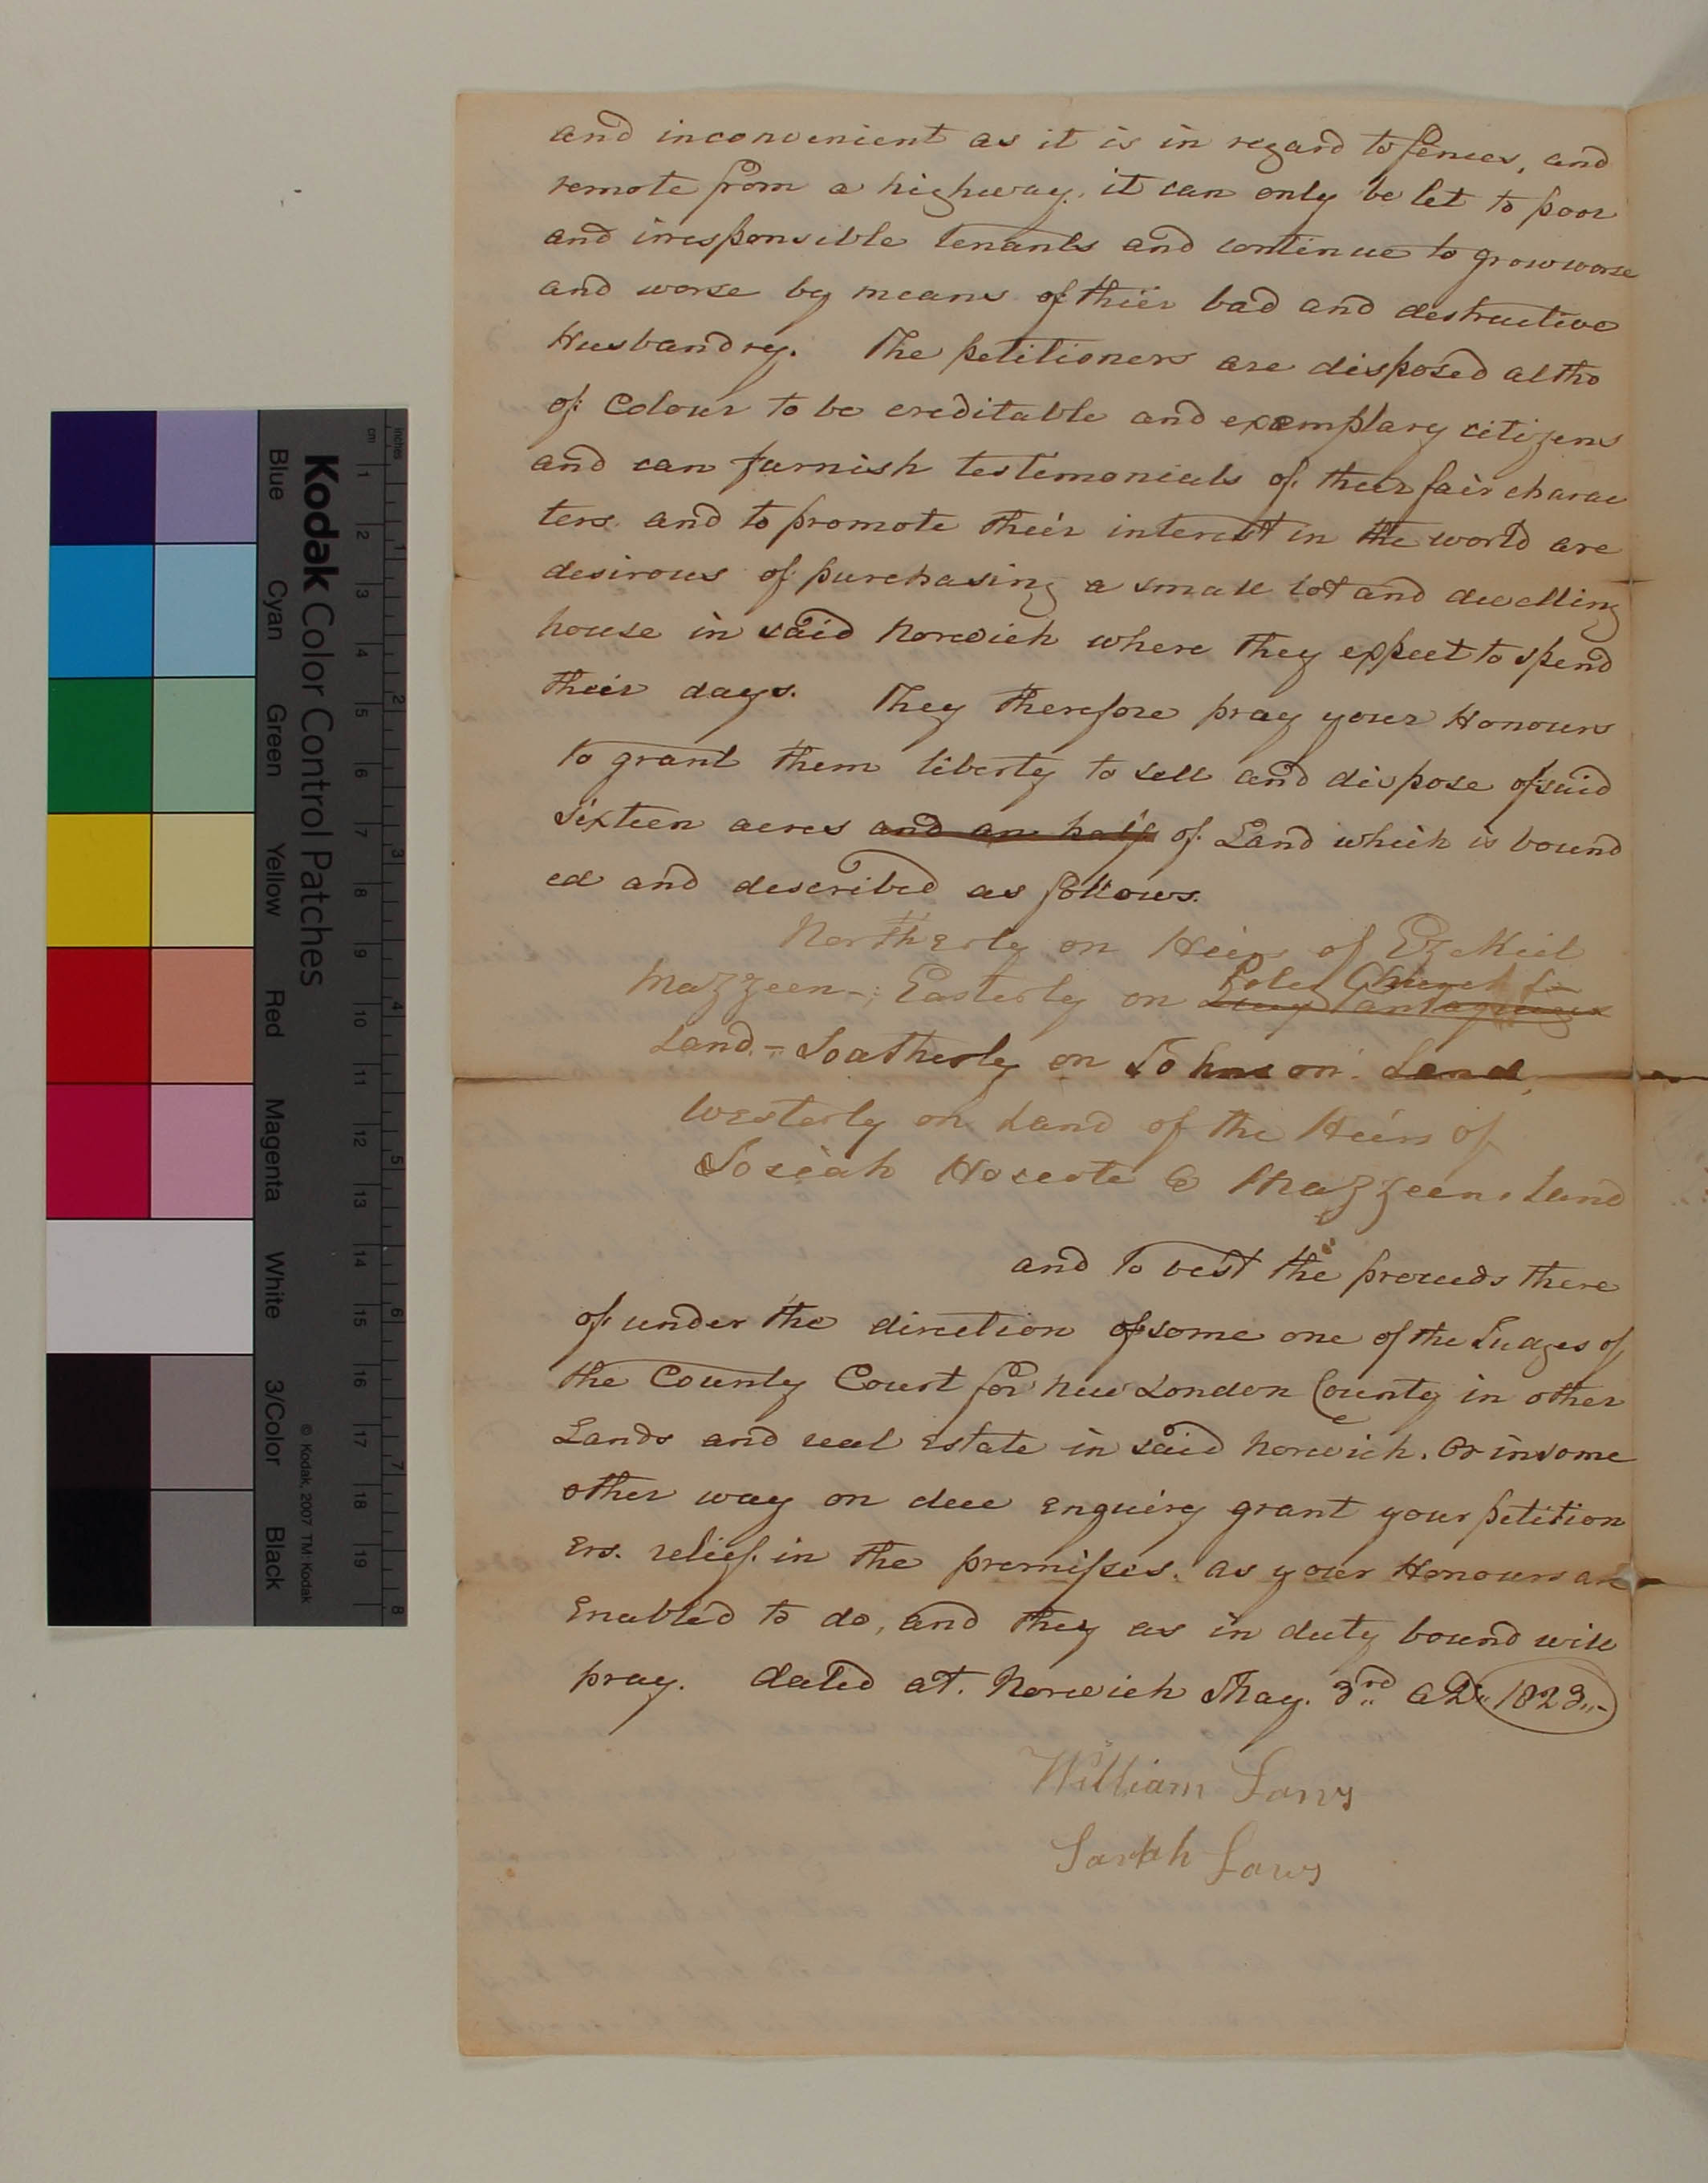 and inconvenient as it is in regard to fences, and
remote from a highway. it can only be let to poor
and irresponsible tenants and continue to grow worse
and worse by means of thier bad and destructive
Husbandry. The petitioners are disposed altho
of Colour to be creditable and exemplary citizens
and can furnish testemonials of their fair charac
ters. and to promote their interest in the world are
desirous of purchasing a small lot and dwelling
house in said Norwich where they expect to spend
their days. They therefore pray your Honours
to grant them liberty to sell and dispose of said
sixteen acres and an half of Land which is bound
ed and described as follows.
Northerly on Heirs of Ezekiel
Mazzeen -; Easterly on Lucy Tantaquies
Church
Land. - Southerly on Johnson Land,
Westerly on Land of the Heirs of
Josiah Hoscote & Mazzeens Land
and to vest the proceeds there
of under the direction of some one of the Judges of
the County Court for New London County in other
Lands and real Estate in said Norwich. Or in some
other way on due Enquiry grant your petition
ers. relief. in the premises. as your Honours are
Enabled to do, and they as in duty bound will
pray. dated at. Norwich May. 3rd AD. 1823.-
William Laws
Sarah Laws
Kodak Color Control Patches
Blue
Cyan
Green
Yellow
Red
Magenta
White
3/Color
Black
© Kodak, 2007 TM: Kodak
inches
cm
1 2 3 4 5 6 7 8 9 10 11 12 13 14 15 16 17 18 19
1 2 3 4 5 6 7 8